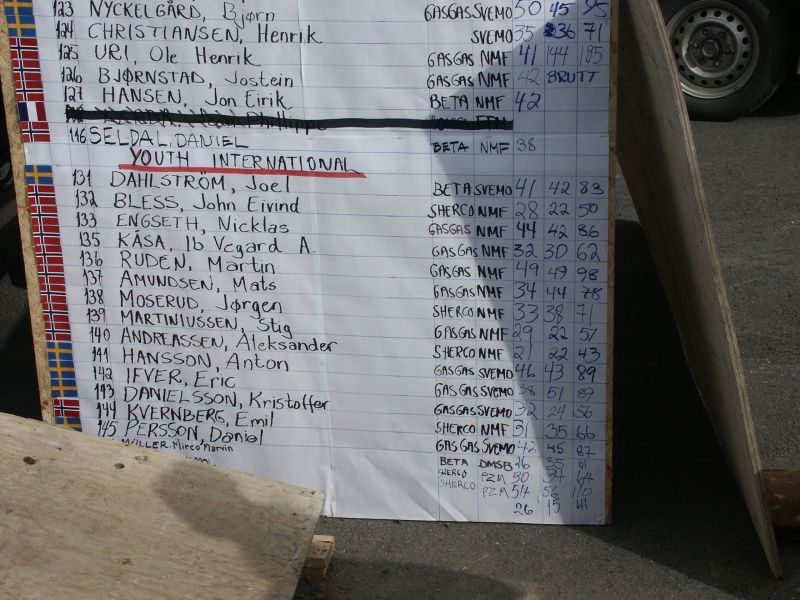 123 NYCKELGÅRD, Bjørn GASGAS SVEMO 50 45 95
124 CHRISTIANSEN, Henrik SVEMO 35 36 71
125 URI, Ole Henrik GASGAS NMF 41 144 185
126 BJØRNSTAD, Jostein GASGAS NMF 42 BRUTT
127 HANSEN, Jon Eirik BETA NMF 42
116 SELDAL, DANIEL BETA NMF 38
YOUTH INTERNATIONAL
131 DAHLSTRÖM, Joel BETA SVEMO 41 42 83
132 BLESS, John Eivind SHERCO NMF 28 22 50
133 ENGSETH, Nicklas GASGAS NMF 44 42 86
135 KÅSA, Ib Vegard A. GASGAS NMF 32 30 62
136 RUDEN, Martin GASGAS NMF 49 49 98
137 AMUNDSEN, Mats GASGAS NMF 34 44 78
138 MOSERUD, Jørgen SHERCO NMF 33 38 71
139 MARTINIUSSEN, Stig GASGAS NMF 29 22 51
140 ANDREASSEN, Aleksander SHERCO NMF 21 22 43
141 HANSSON, Anton GASGAS SVEMO 46 43 89
142 IFVER, Eric GASGAS SVEMO 38 51 89
143 DANIELSSON, Kristoffer GASGAS SVEMO 32 24 56
144 KVERNBERG, Emil SHERCO NMF 31 35 66
145 PERSSON, Daniel GASGAS SVEMO 42 45 87
Mirco Martin BETA DMSB 26 35 61
PZM 30 34 64
SHERCO PZM 54 56 110
26 15 41